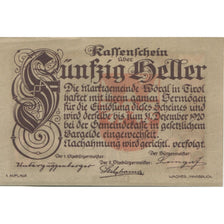 Kassenschein
über
Fünfzig Heller
Die Marktgemeinde Wörgl in Tirol
haftet mit ihrem ganzen Vermögen
für die Einlösung dieses Scheines und
wird derselbe bis zum 31. Dezember 1920
bei der Gemeindekasse in gesetzliches
Bargeld eingewechselt.
Nachahmung wird gerichtl. verfolgt
Der 1. Vizebürgermeister:
Der Bürgermeister:
Unterguggenberger
Der 2. Vizebürgermeister:
1. AUFLAGE
WAGNER, INNSBRUCK